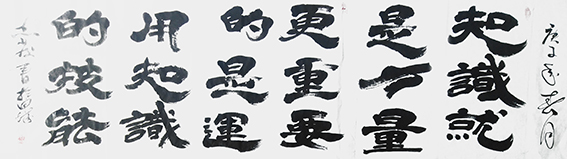 庚子年春月
知識就
是力量
更重要
的是運
用知識
的技能